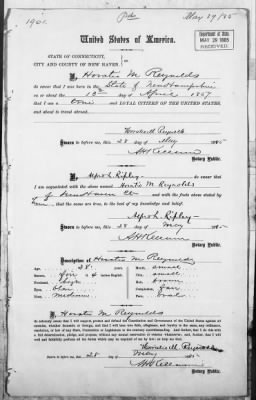 1901.
May 29/85
United States of America.
Department of State
MAY 29 1885
RECEIVED
STATE OF CONNECTICUT,
CITY AND COUNTY OF NEW HAVEN
I, Horatio M. Reynolds do swear
that I was born in the State of New Hampshire
on or about the 13th day of April 1857
that I am a and LOYAL CITIZEN OF THE UNITED STATES,
and about to travel abroad.
Horatio M. Reynolds
Sworn to before me, this 28 day of May 1885
Notary Public.
I, Alfred L. Ripley do swear that
I am acquainted with the above named Horatio M. Reynolds
of New Haven Ct and with the facts above stated by
him, that the same are true, to the best of my knowledge and belief.
Alfred L. Ripley
Sworn to before me, this 28 day of May 1885
Notary Public.
Description of Horatio M. Reynolds
Age, 28 years.
Mouth, small
Stature, five feet English.
Chin, small
Forehead, high
Hair, brown
Eyes, blue
Complexion, fair
Nose, medium
Face, oval
I, Horatio M. Reynolds
do solemnly swear that I will support, protect and defend the Constitution and Government of the United States against all
enemies, whether domestic or foreign, and that I will bear true faith, allegiance, and loyalty to the same, any ordinance,
resolution, or law of any State, Convention or Legislature to the contrary notwithstanding; and further, that I do this with
a full determination, pledge, and purpose, without any mental reservation or evasion whatsoever; and, further, that I will
well and faithfully perform all the duties which may be required of me by law. So help me God.
Horatio M. Reynolds
Sworn to before me, this 28 day of May 1885
Notary Public.